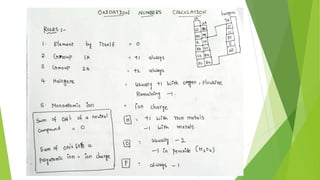 OXIDATION NUMBERS CALCULATION
RULES :-
1. Element by itself = 0
2. Group 1A = +1 always
3 Group 2A = +2 always
4 Halogens = usually +1 with oxygen, fluorine
Remaining -1.
5 Monoatomic ion = ion charge
Sum of ON's of a neutral
compound = 0
Sum of ON's
polyatomic ion = ion charge
H = +1 with non metals
-1 with metals
O = usually -2
-1 in peroxide (H2O2)
F = always -1